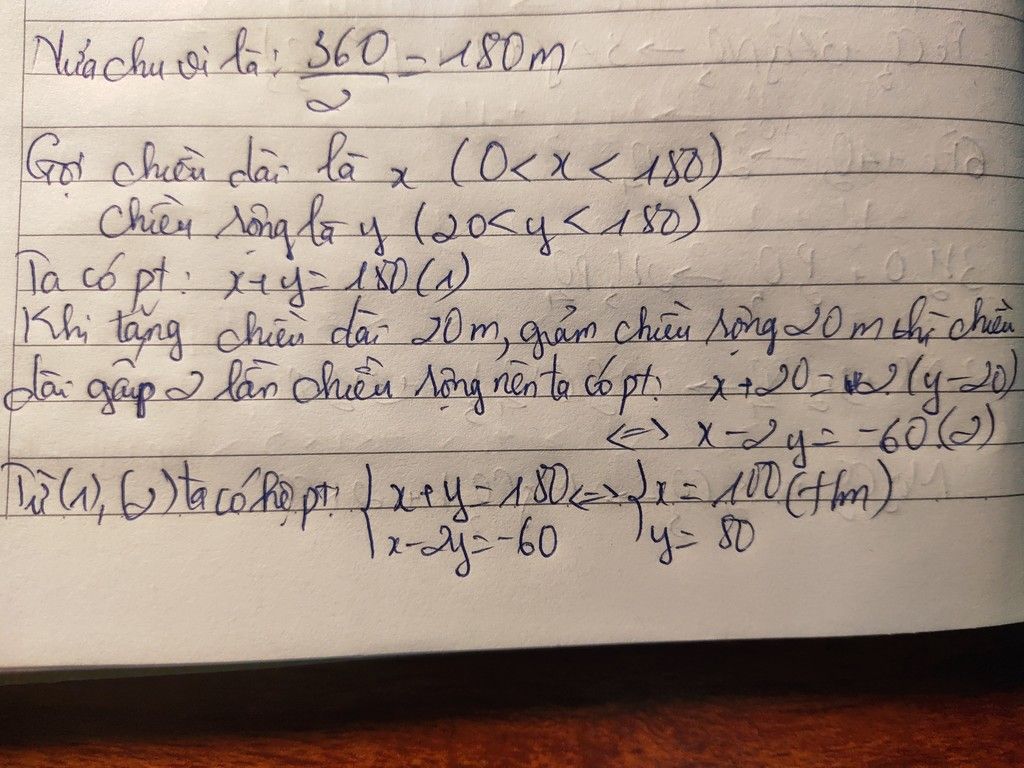 Nửa chu vi là: 360/2 = 180m
Gọi chiều dài là x (0 < x < 180)
chiều rộng là y (20 < y < 180)
Ta có pt: x + y = 180 (1)
Khi tăng chiều dài 20m, giảm chiều rộng 20m thì chiều
dài gấp 2 lần chiều rộng nên ta có pt: x + 20 = 2.(y - 20)
<=> x - 2y = -60 (2)
Từ (1), (2) ta có hệ pt: { x + y = 180 <=> { x = 100 (tm)
x - 2y = -60 y = 80